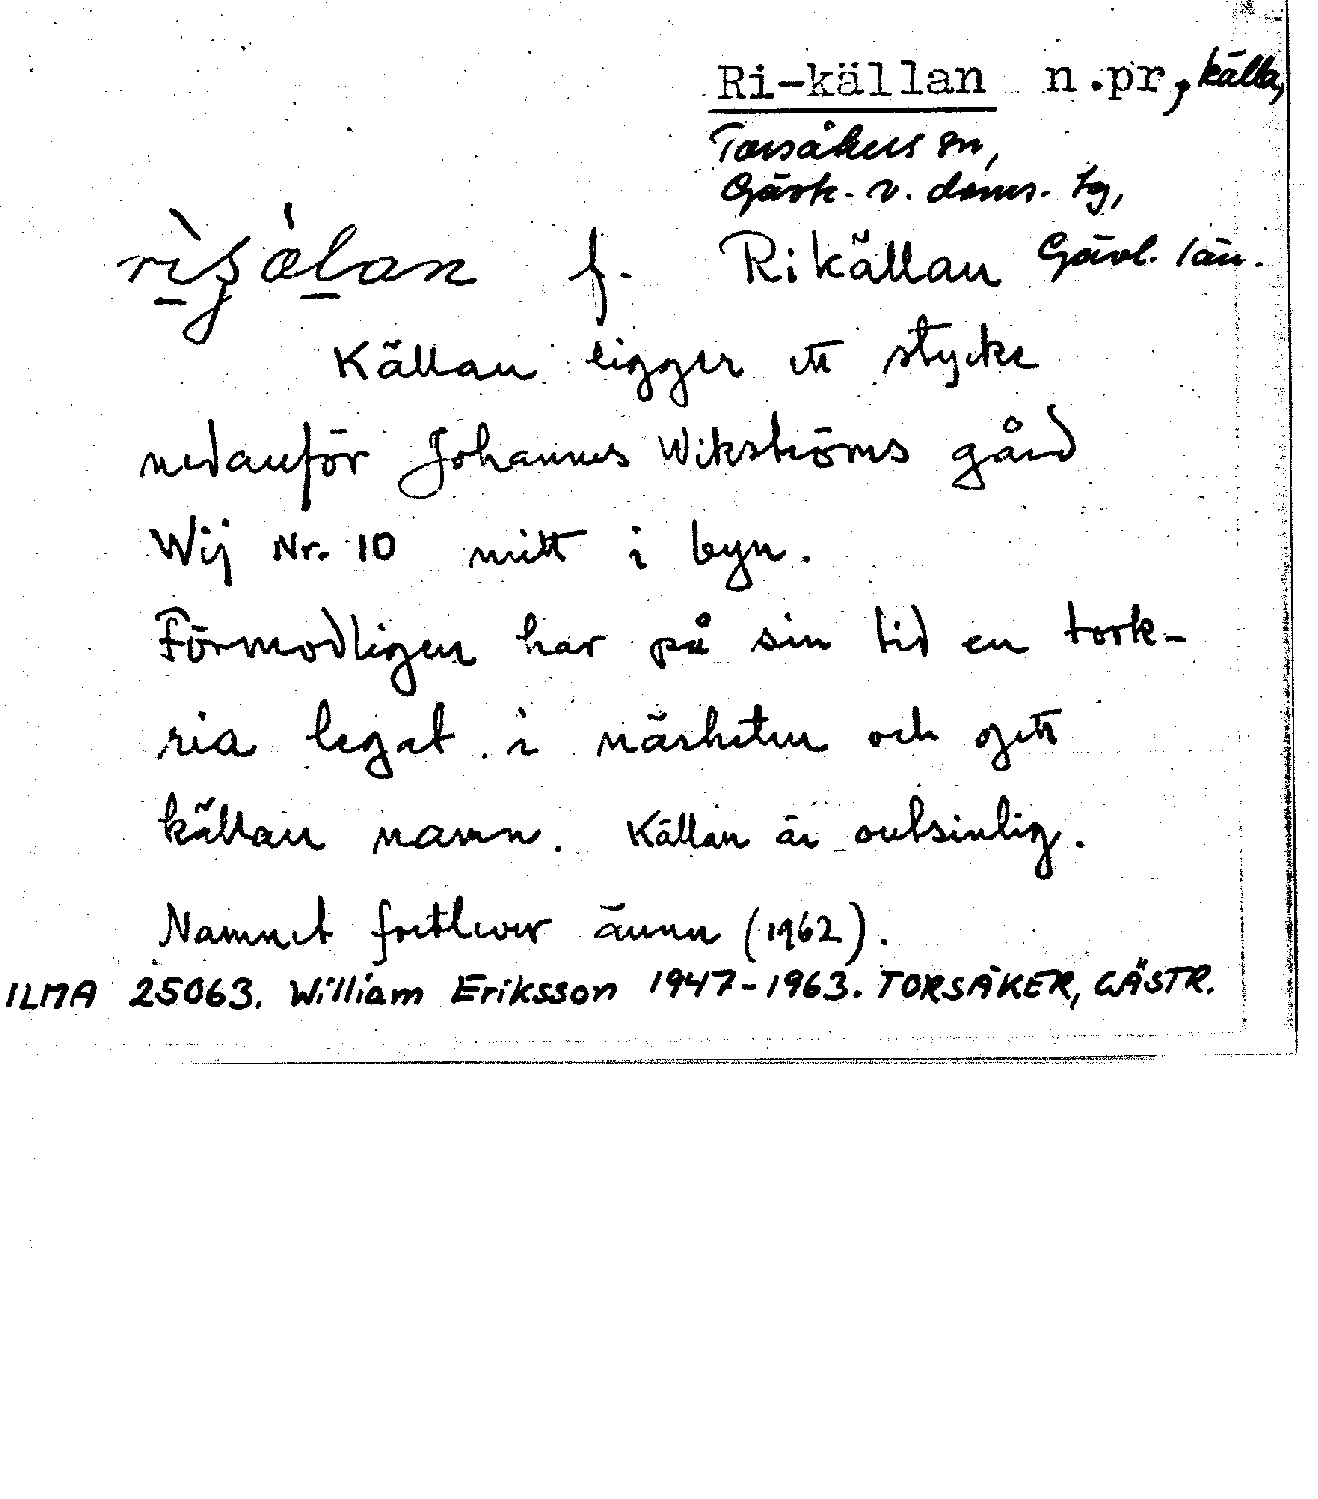 Ri-källan n.pr, källa,
Torsåkers sn,
Gästr. v. doms. tg,
Gävl. län.
f. Rikällan
Källan ligger ett stycke
nedanför Johannes Wikströms gård
Wij Nr. 10 mitt i byn.
Förmodligen har på sin tid en tork-
ria legat i närheten och gett
källan namn. Källan är outsinlig.
Namnet fortlever ännu (1962).
ILMA 25063. William Eriksson 1947-1963. TORSÅKER, GÄSTR.